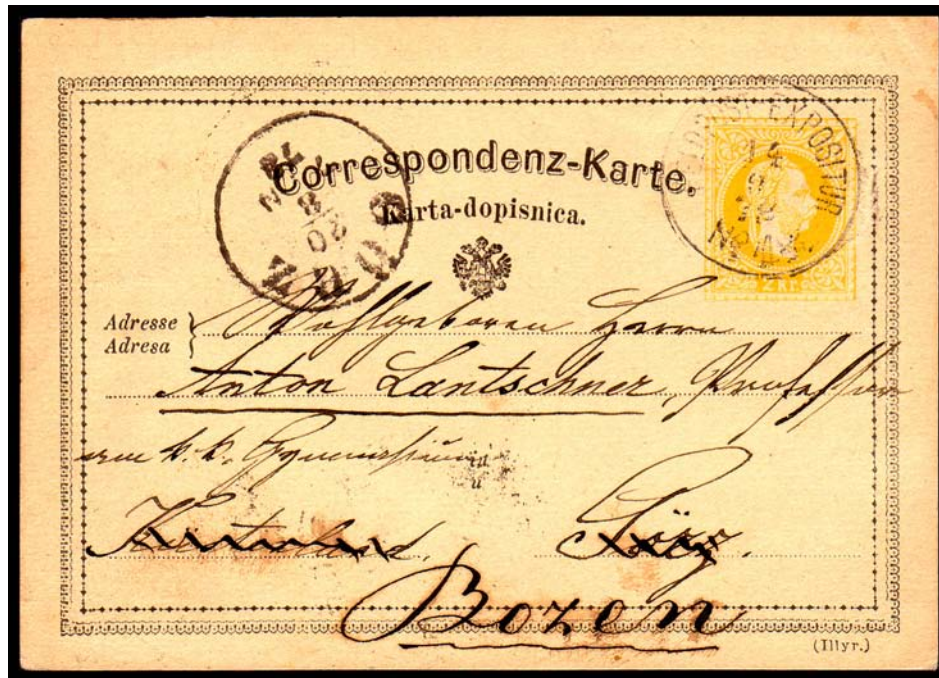 Correspondenz-Karte.
Karta-dopisnica.
EXPOSITUR
14
78
No
2 Kr.
Adresse
Adresa
Wohlgeboren Herrn
Anton Lantschner, Professor
am k. k. Gymnasium
in
u
Küstenland. Görz.
Bozen
(Illyr.)